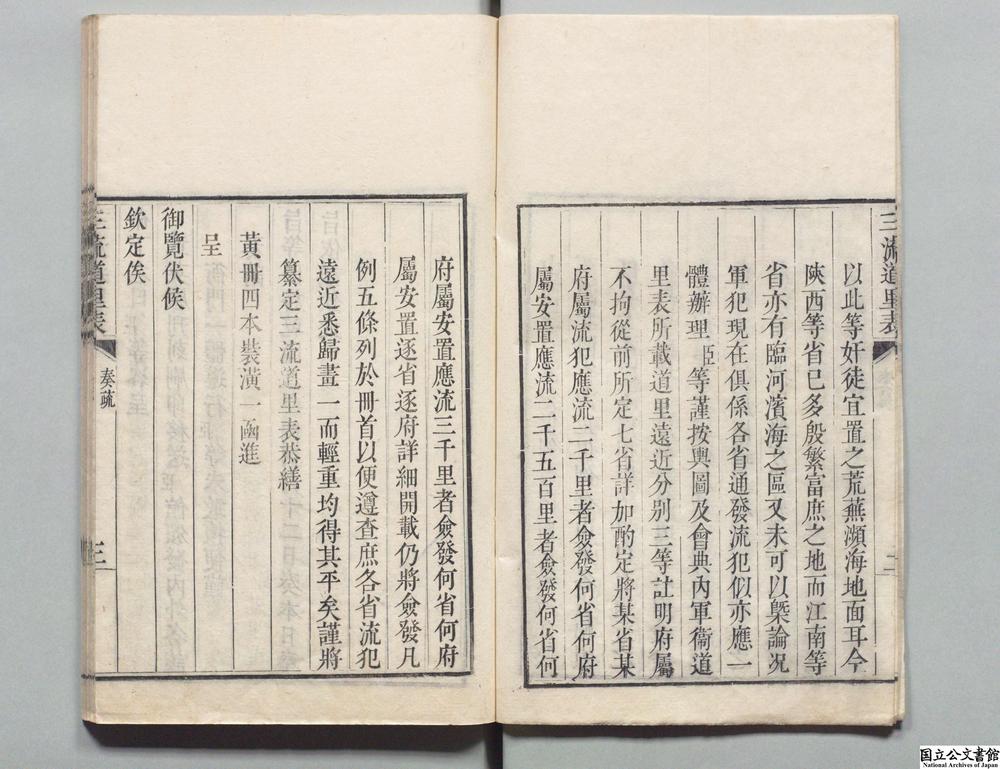 三流道里表
二
以此等奸徒宜置之荒蕪瀕海地面耳今
陝西等省已多殷繁富庶之地而江南等
省亦有臨河濱海之區又未可以槩論况
軍犯現在俱係各省通發流犯似亦應一
體辦理臣等謹按輿圖及會典內軍衞道
里表所載道里遠近分別三等註明府屬
不拘從前所定七省詳加酌定將某省某
府屬流犯應流二千里者僉發何省何府
屬安置應流二千五百里者僉發何省何
府屬安置應流三千里者僉發何省何府
屬安置逐省逐府詳細開載仍將僉發凡
例五條列於冊首以便遵查庶各省流犯
遠近悉歸畫一而輕重均得其平矣謹將
纂定三流道里表恭繕
黃冊四本裝潢一函進
呈
御覽伏候
欽定俟
三流道里表
奏疏
三
国立公文書館
National Archives of Japan